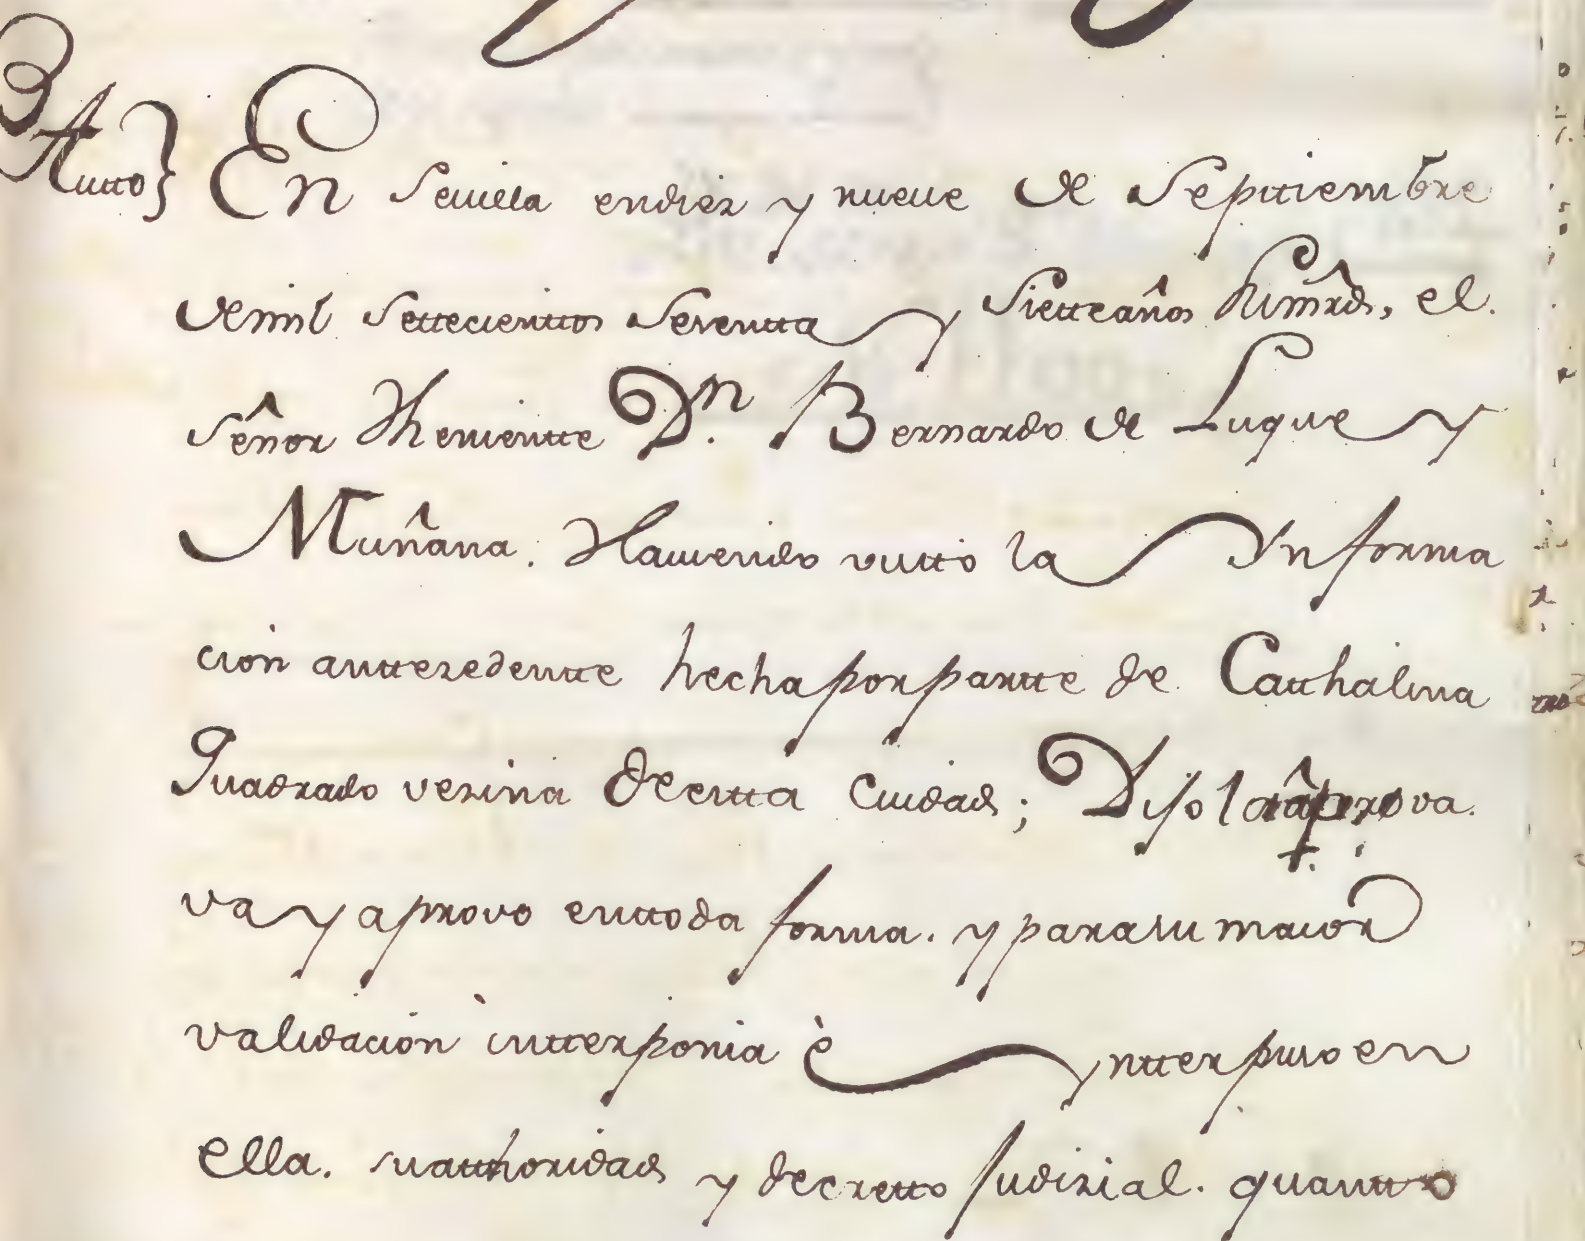 Autto} En Sevilla en diez y nueve de Septtiembre
de mil Settecienttos Settentta y Sietteaños, el
Señor Thenientte Dn. Bernardo de Luque y
Muñana. Haviendo visto la Ynforma
cion anttezedentte hecha por partte de Catthalina
Quadrado vezina de estta Ciudad; Dijo la aprova.
va y aprovo en ttoda forma. y para su maior
validacion intterponia è yntterpuso en
ella. su autthoridad y decretto Judizial. quantto